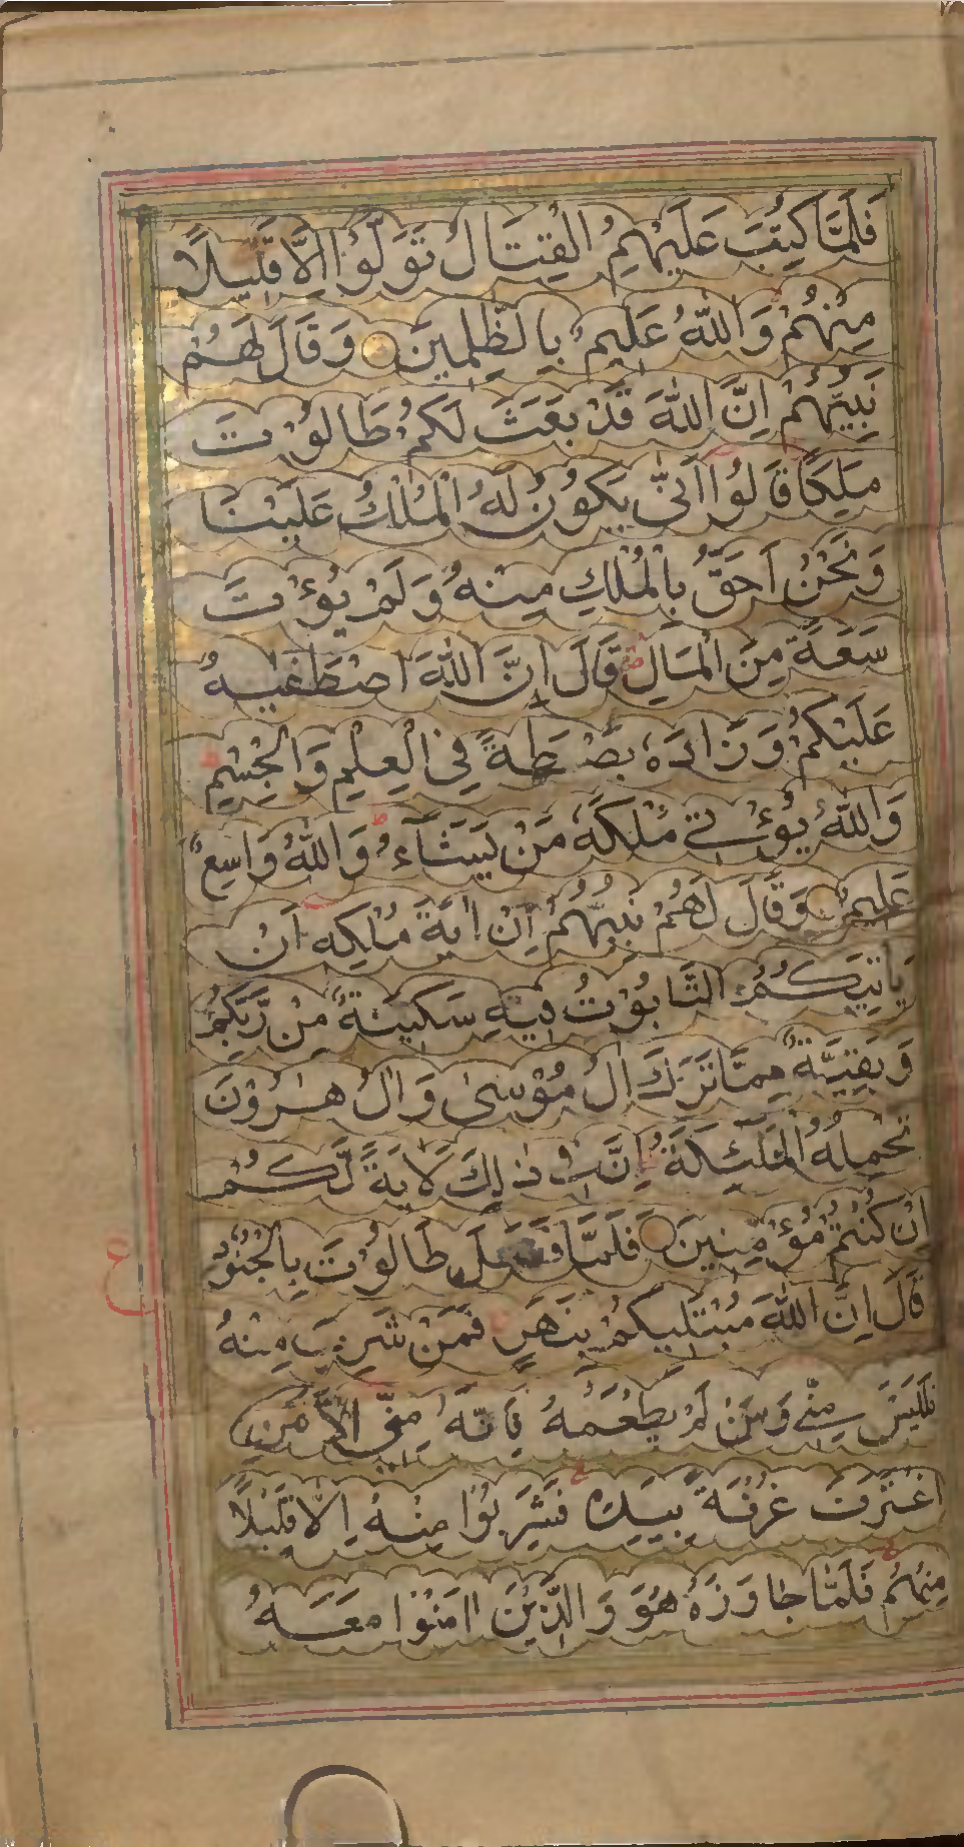 فَلَمَّا كُتِبَ عَلَيْهِمُ الْقِتَالُ تَوَلَّوْا اِلَّا قَلِيْلًا
مِنْهُمْ وَاللّٰهُ عَلِيْمٌ بِالظّٰلِمِيْنَ وَقَالَ لَهُمْ
نَبِيُّهُمْ اِنَّ اللّٰهَ قَدْ بَعَثَ لَكُمْ طَالُوْتَ
مَلِكًا قَالُوْا اَنّٰى يَكُوْنُ لَهُ الْمُلْكُ عَلَيْنَا
وَنَحْنُ اَحَقُّ بِالْمُلْكِ مِنْهُ وَلَمْ يُؤْتَ
سَعَةً مِنَ الْمَالِ قَالَ اِنَّ اللّٰهَ اصْطَفٰيهُ
عَلَيْكُمْ وَزَادَهُ بَصْطَةً فِي الْعِلْمِ وَالْجِسْمِ
وَاللّٰهُ يُؤْتِيْ مُلْكَهُ مَنْ يَشَآءُ وَاللّٰهُ وَاسِعٌ
عَلِيْمٌ وَقَالَ لَهُمْ نَبِيُّهُمْ اِنَّ اٰيَةَ مُلْكِهٖ اَنْ
يَاْتِيَكُمُ التَّابُوْتُ فِيْهِ سَكِيْنَةٌ مِنْ رَّبِّكُمْ
وَبَقِيَّةٌ مِمَّا تَرَكَ اٰلُ مُوْسٰى وَاٰلُ هٰرُوْنَ
تَحْمِلُهُ الْمَلٰٓئِكَةُ اِنَّ فِيْ ذٰلِكَ لَاٰيَةً لَّكُمْ
اِنْ كُنْتُمْ مُؤْمِنِيْنَ فَلَمَّا فَصَلَ طَالُوْتُ بِالْجُنُوْدِ
قَالَ اِنَّ اللّٰهَ مُبْتَلِيْكُمْ بِنَهَرٍ فَمَنْ شَرِبَ مِنْهُ
فَلَيْسَ مِنِّيْ وَمَنْ لَمْ يَطْعَمْهُ فَاِنَّهُ مِنِّيْ اِلَّا مَنِ
اغْتَرَفَ غُرْفَةً بِيَدِهٖ فَشَرِبُوْا مِنْهُ اِلَّا قَلِيْلًا
مِنْهُمْ فَلَمَّا جَاوَزَهُ هُوَ وَالَّذِيْنَ اٰمَنُوْا مَعَهُ
ع